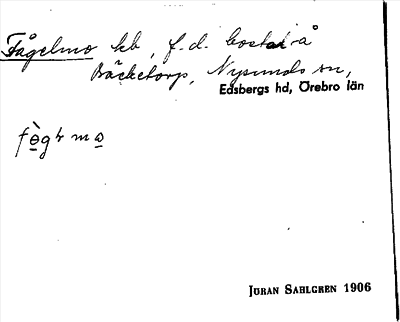 Fågelmo kb, f.d. bostad å
Bäcketorp, Nysunds sn,
Edsbergs hd, Örebro län
fògḷmo
JÖRAN SAHLGREN 1906